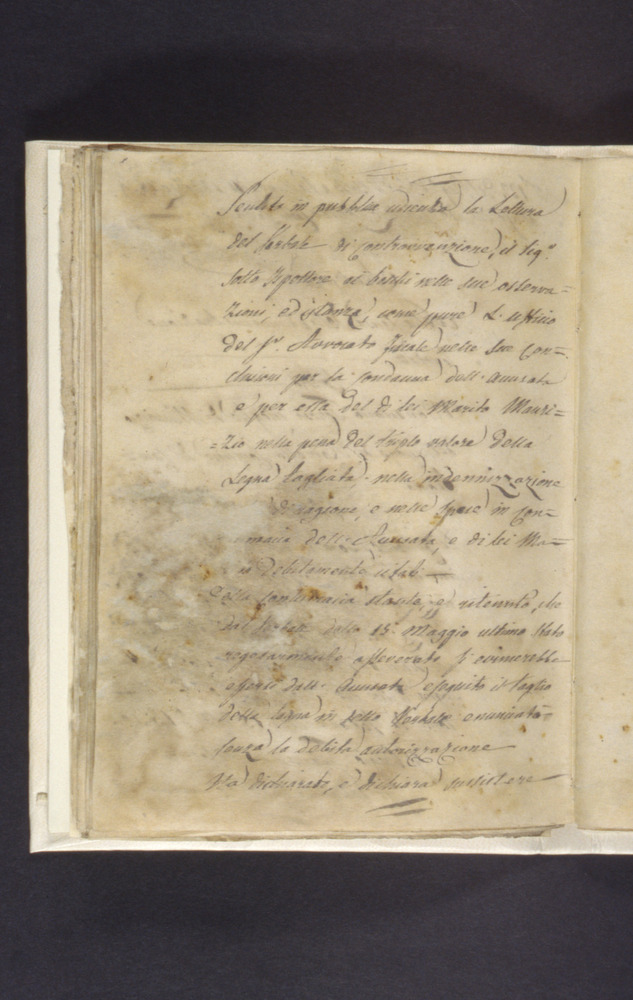 Sentita in pubblica udienza la Lettura
del Verbale di Contravvenzione, il Sig.r
Sotto Ispettore ai boschi nelle sue osserva=
zioni, ed istanza, come pure L'ufficio
del S.r Avvocato fiscale nelle sue Con=
clusioni per la condanna dell'accusata
e per essa del di lei Marito Mauri=
=zio nella pena del triplo valore della
Legna tagliata, nella indennizzazione
di ragione, e nelle spese in Con=
macia dell'Accusata, e di lei Ma=
debitamente citati
Della Contumacia stante, e ritenuto, che
dal Verbale delli 15. Maggio ultimo stato
asseverato si evincerebbe
dall'Accusata eseguito il taglio
della legna in detto Verbale enunciata
senza la debita autorizzazione
Ha dichiarato, e dichiara sussistere